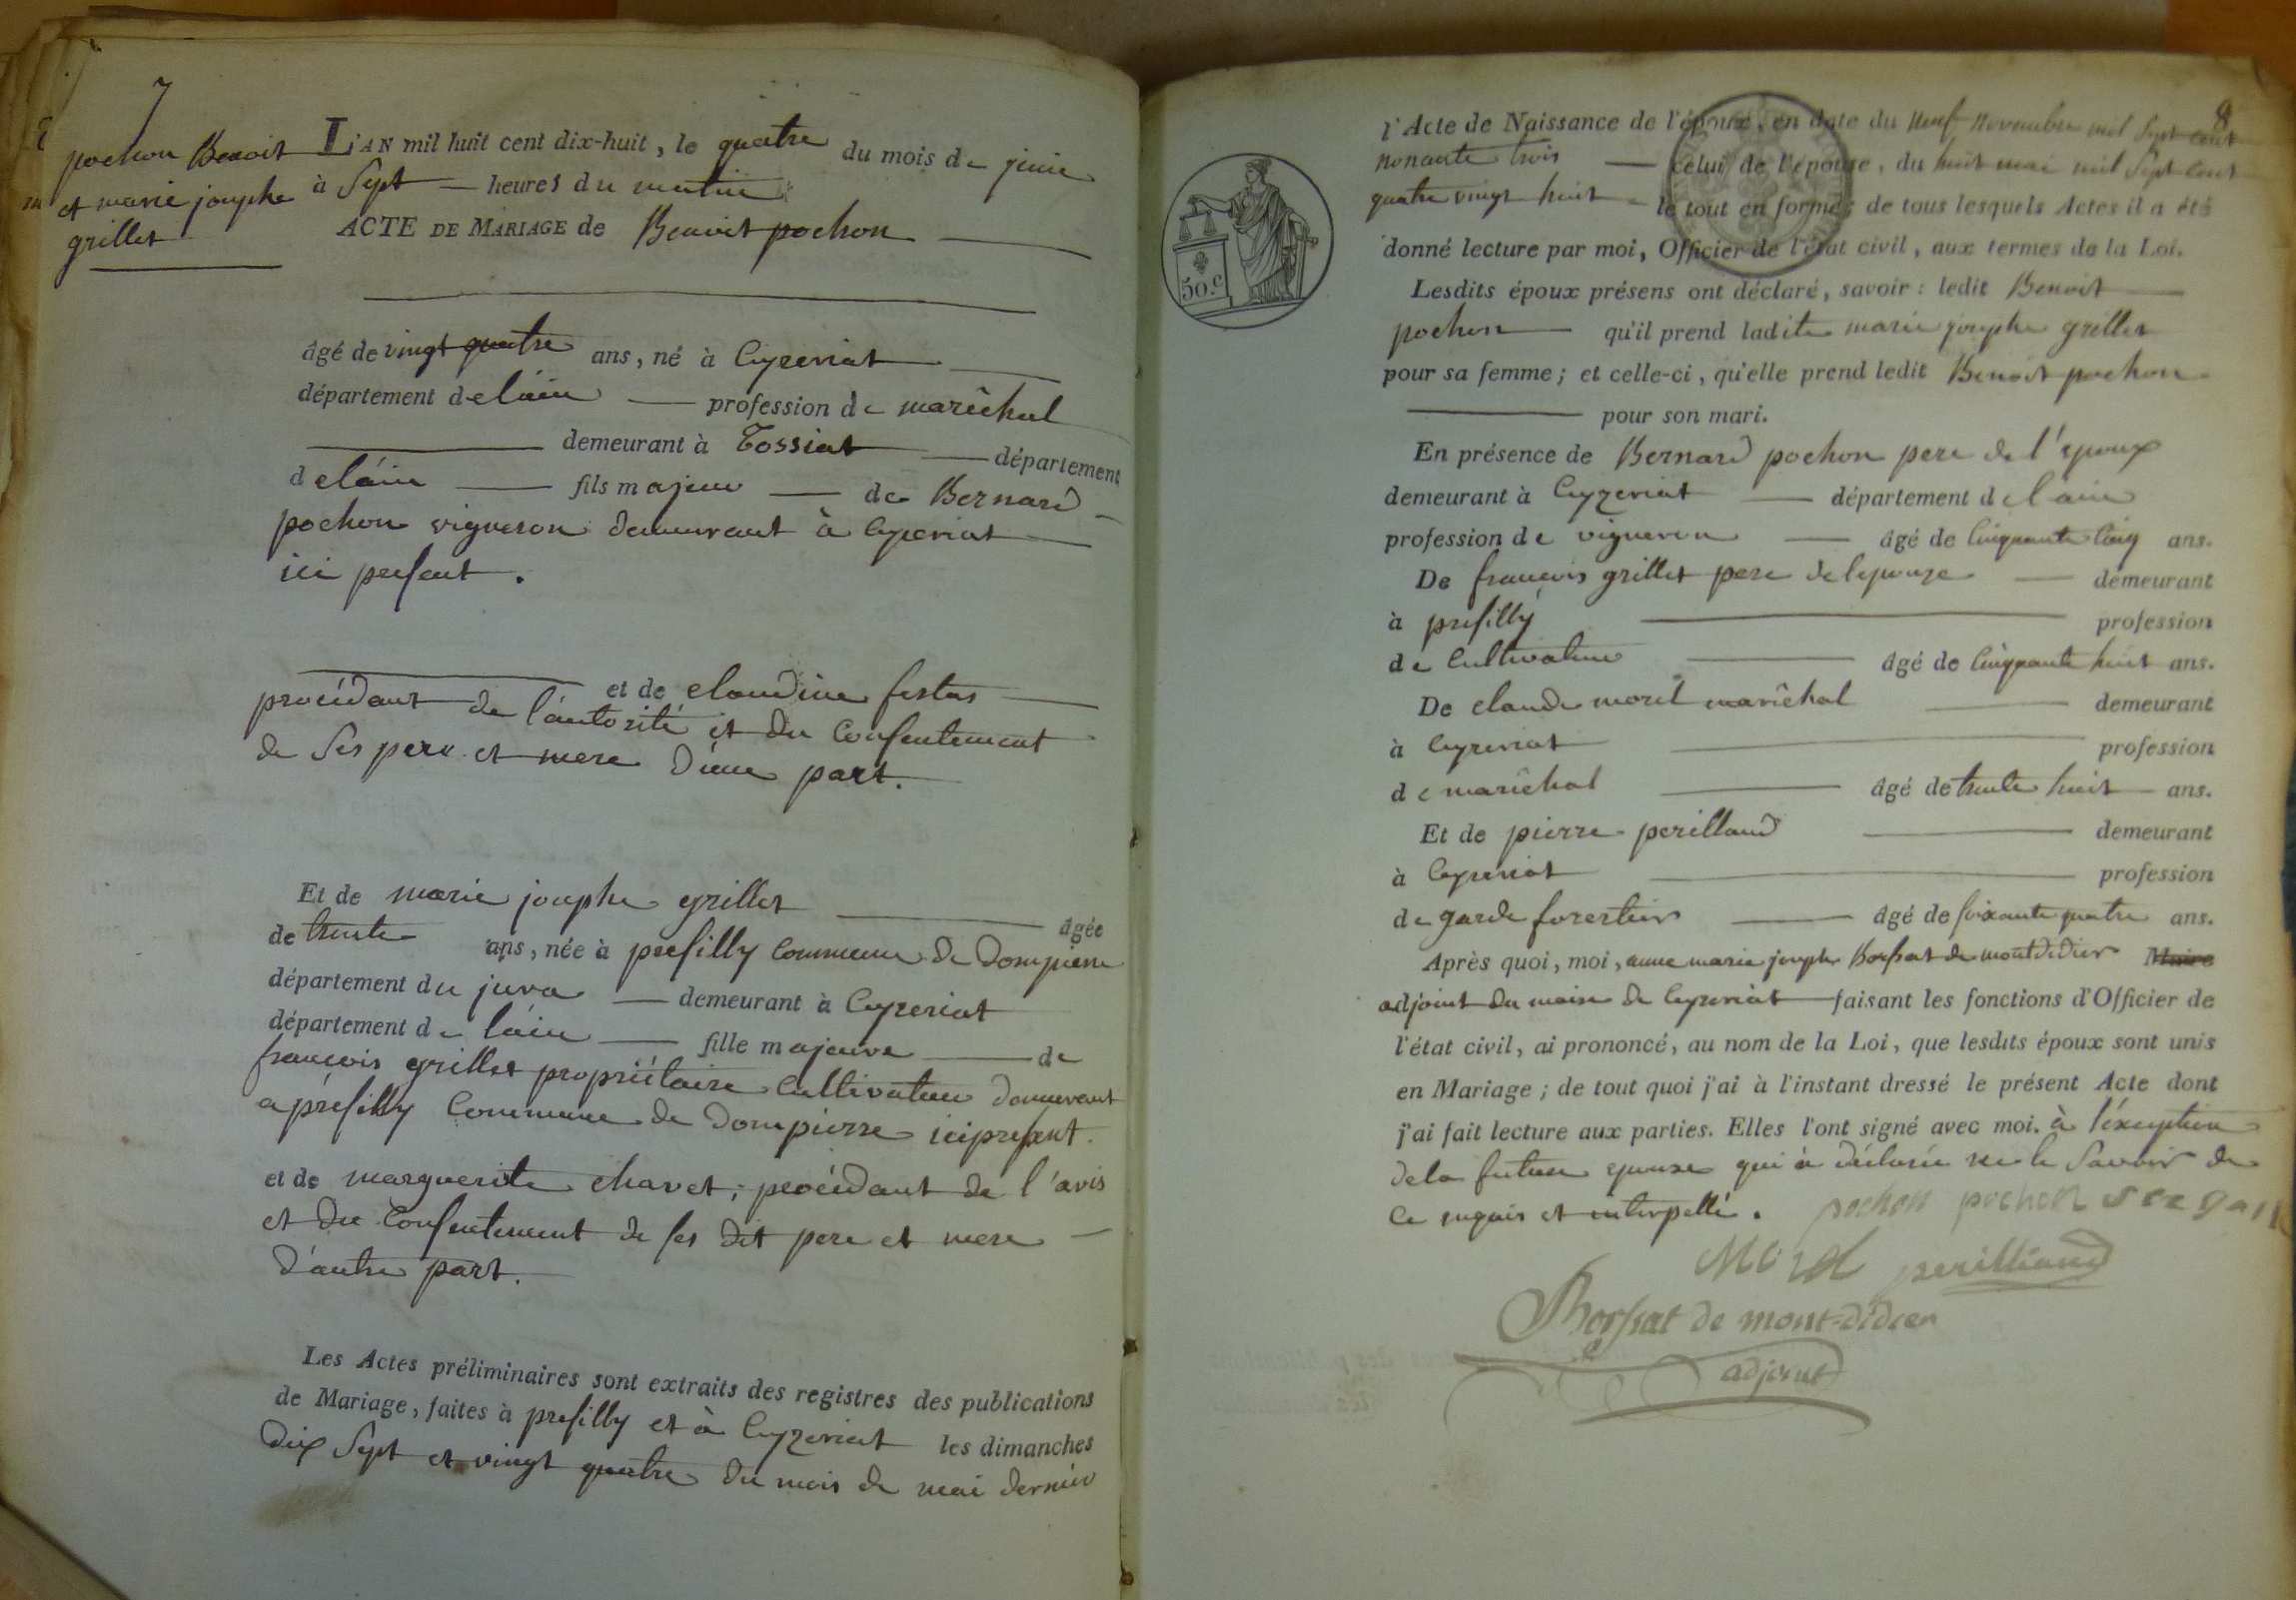 7
pochon Benoit
et marie josephe
grillet
L'AN mil huit cent dix-huit, le quatre du mois de juin
à Sept — heures du matin
ACTE DE MARIAGE de Benoit pochon
âgé de vingt quatre ans, né à Ceyzeriat
département de lain — profession de marêchal
demeurant à Tossiat — département
de láin — fils majeur — de Bernard
pochon vigneron demeurant à Ceyzeriat
ici present.
et de claudine festas
procédant de l'autorité et du Consentement
de Ses pere et mere d'une part.
Et de marie josephe grillet âgée
de trente ans, née à presilly Commune de Dompierre
département du jura — demeurant à Ceyzeriat
département de láin — fille majeure — de
francois grillet propriétaire Cultivateur demeurant
a présilly Commune de Dompierre ici present.
et de marguerite chavet, procédant de l'avis
et du Consentement de ses dit pere et mere —
d'autre part.
Les Actes préliminaires sont extraits des registres des publications
de Mariage, faites à presilly et à Ceyzeriat les dimanches
dix Sept et vingt quatre du mois de mai dernier
8
l'Acte de Naissance de l'époux, en date du neuf novembre mil Sept cent
nonante trois — celui de l'épouse, du huit mai mil Sept Cent
quatre vingt huit — le tout en forme; de tous lesquels Actes il a été
donné lecture par moi, Officier de l'état civil, aux termes de la Loi.
50.c
Lesdits époux présens ont déclaré, savoir: ledit Benoit
pochon — qu'il prend ladite marie josephe grillet
pour sa femme; et celle-ci, qu'elle prend ledit Benoit pochon
— pour son mari.
En présence de Bernard pochon pere de l'epoux
demeurant à Ceyzeriat — département de lain
profession de vigneron — âgé de Cinquante Cinq ans.
De francois grillet pere de lepouze — demeurant
à presilly — profession
de Cultivateur — âgé de Cinquante huit ans.
De claude morel marêchal — demeurant
à Ceyzeriat — profession
de marêchal — âgé de trente huit — ans.
Et de pierre perilland — demeurant
à Ceyzeriat — profession
de garde forestier — âgé de soixante quatre ans.
Après quoi, moi, anne marie joseph Borsat de montdidier Maire
adjoint du maire de Ceyzeriat — faisant les fonctions d'Officier de
l'état civil, ai prononcé, au nom de la Loi, que lesdits époux sont unis
en Mariage; de tout quoi j'ai à l'instant dressé le présent Acte dont
j'ai fait lecture aux parties. Elles l'ont signé avec moi. à l'éxception
de la future epouse qui à déclarée ne le Savoir de
Ce requis et interpellé. pochon pochon
Morel perilliand
Borsat de mont-didier
adjoint